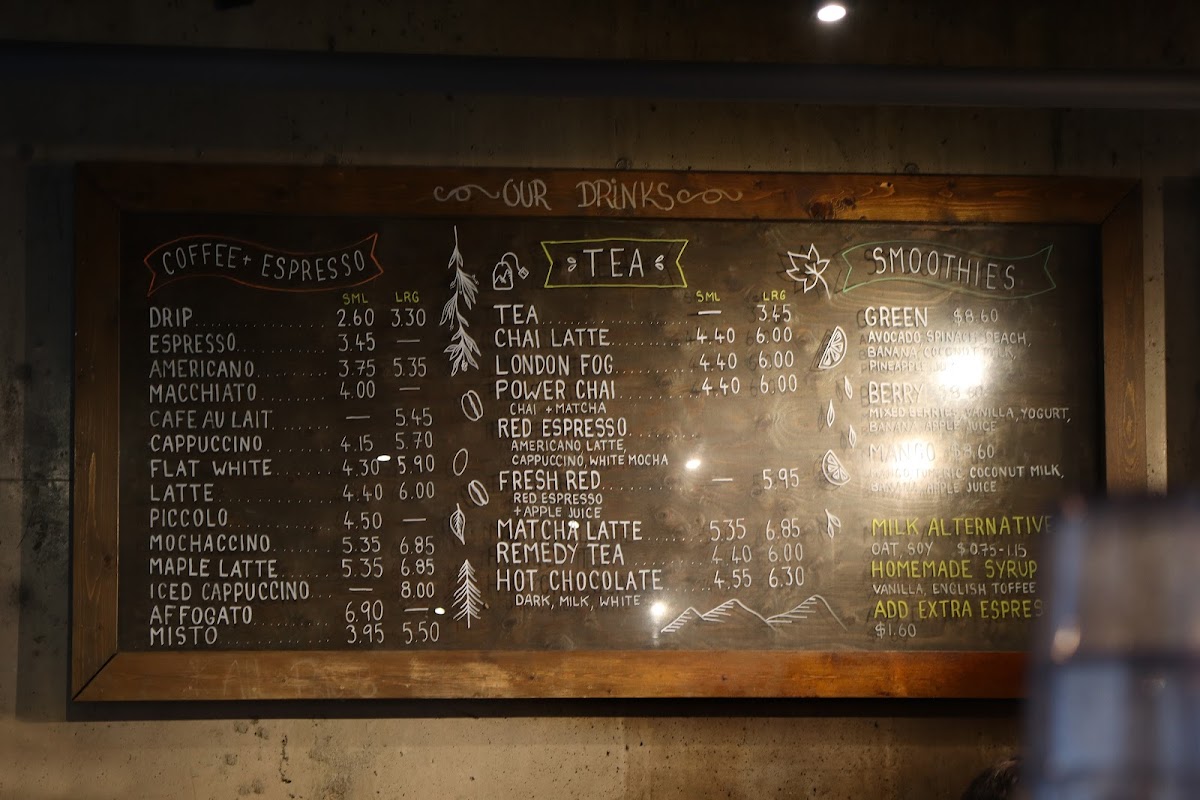 OUR DRINKS
COFFEE + ESPRESSO
SML LRG
DRIP 2.60 3.30
ESPRESSO 3.45 —
AMERICANO 3.75 5.35
MACCHIATO 4.00 —
CAFE AU LAIT — 5.45
CAPPUCCINO 4.15 5.70
FLAT WHITE 4.30 5.90
LATTE 4.40 6.00
PICCOLO 4.50 —
MOCHACCINO 5.35 6.85
MAPLE LATTE 5.35 6.85
ICED CAPPUCCINO — 8.00
AFFOGATO 6.90 —
MISTO 3.95 5.50
TEA
SML LRG
TEA — 3.45
CHAI LATTE 4.40 6.00
LONDON FOG 4.40 6.00
POWER CHAI 4.40 6.00
CHAI + MATCHA
RED ESPRESSO
AMERICANO, LATTE,
CAPPUCCINO, WHITE MOCHA
FRESH RED — 5.95
RED ESPRESSO
+ APPLE JUICE
MATCHA LATTE 5.35 6.85
REMEDY TEA 4.40 6.00
HOT CHOCOLATE 4.55 6.30
DARK, MILK, WHITE
SMOOTHIES
GREEN $8.60
AVOCADO SPINACH, PEACH,
BANANA COCONUT MILK,
PINEAPPLE
BERRY
MIXED BERRIES, VANILLA, YOGURT,
BANANA APPLE JUICE
MANGO $8.60
MANGO TUMERIC, COCONUT MILK,
APPLE JUICE
MILK ALTERNATIVE
OAT, SOY $0.75-1.15
HOMEMADE SYRUP
VANILLA, ENGLISH TOFFEE
ADD EXTRA ESPRES
$1.60